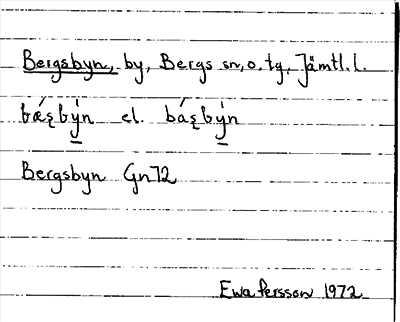 Bergsbyn, by, Bergs sn, o. tg, Jämtl. l.
bǽʂbýn el. báʂbýn
Bergsbyn Gn72
Ewa Persson 1972